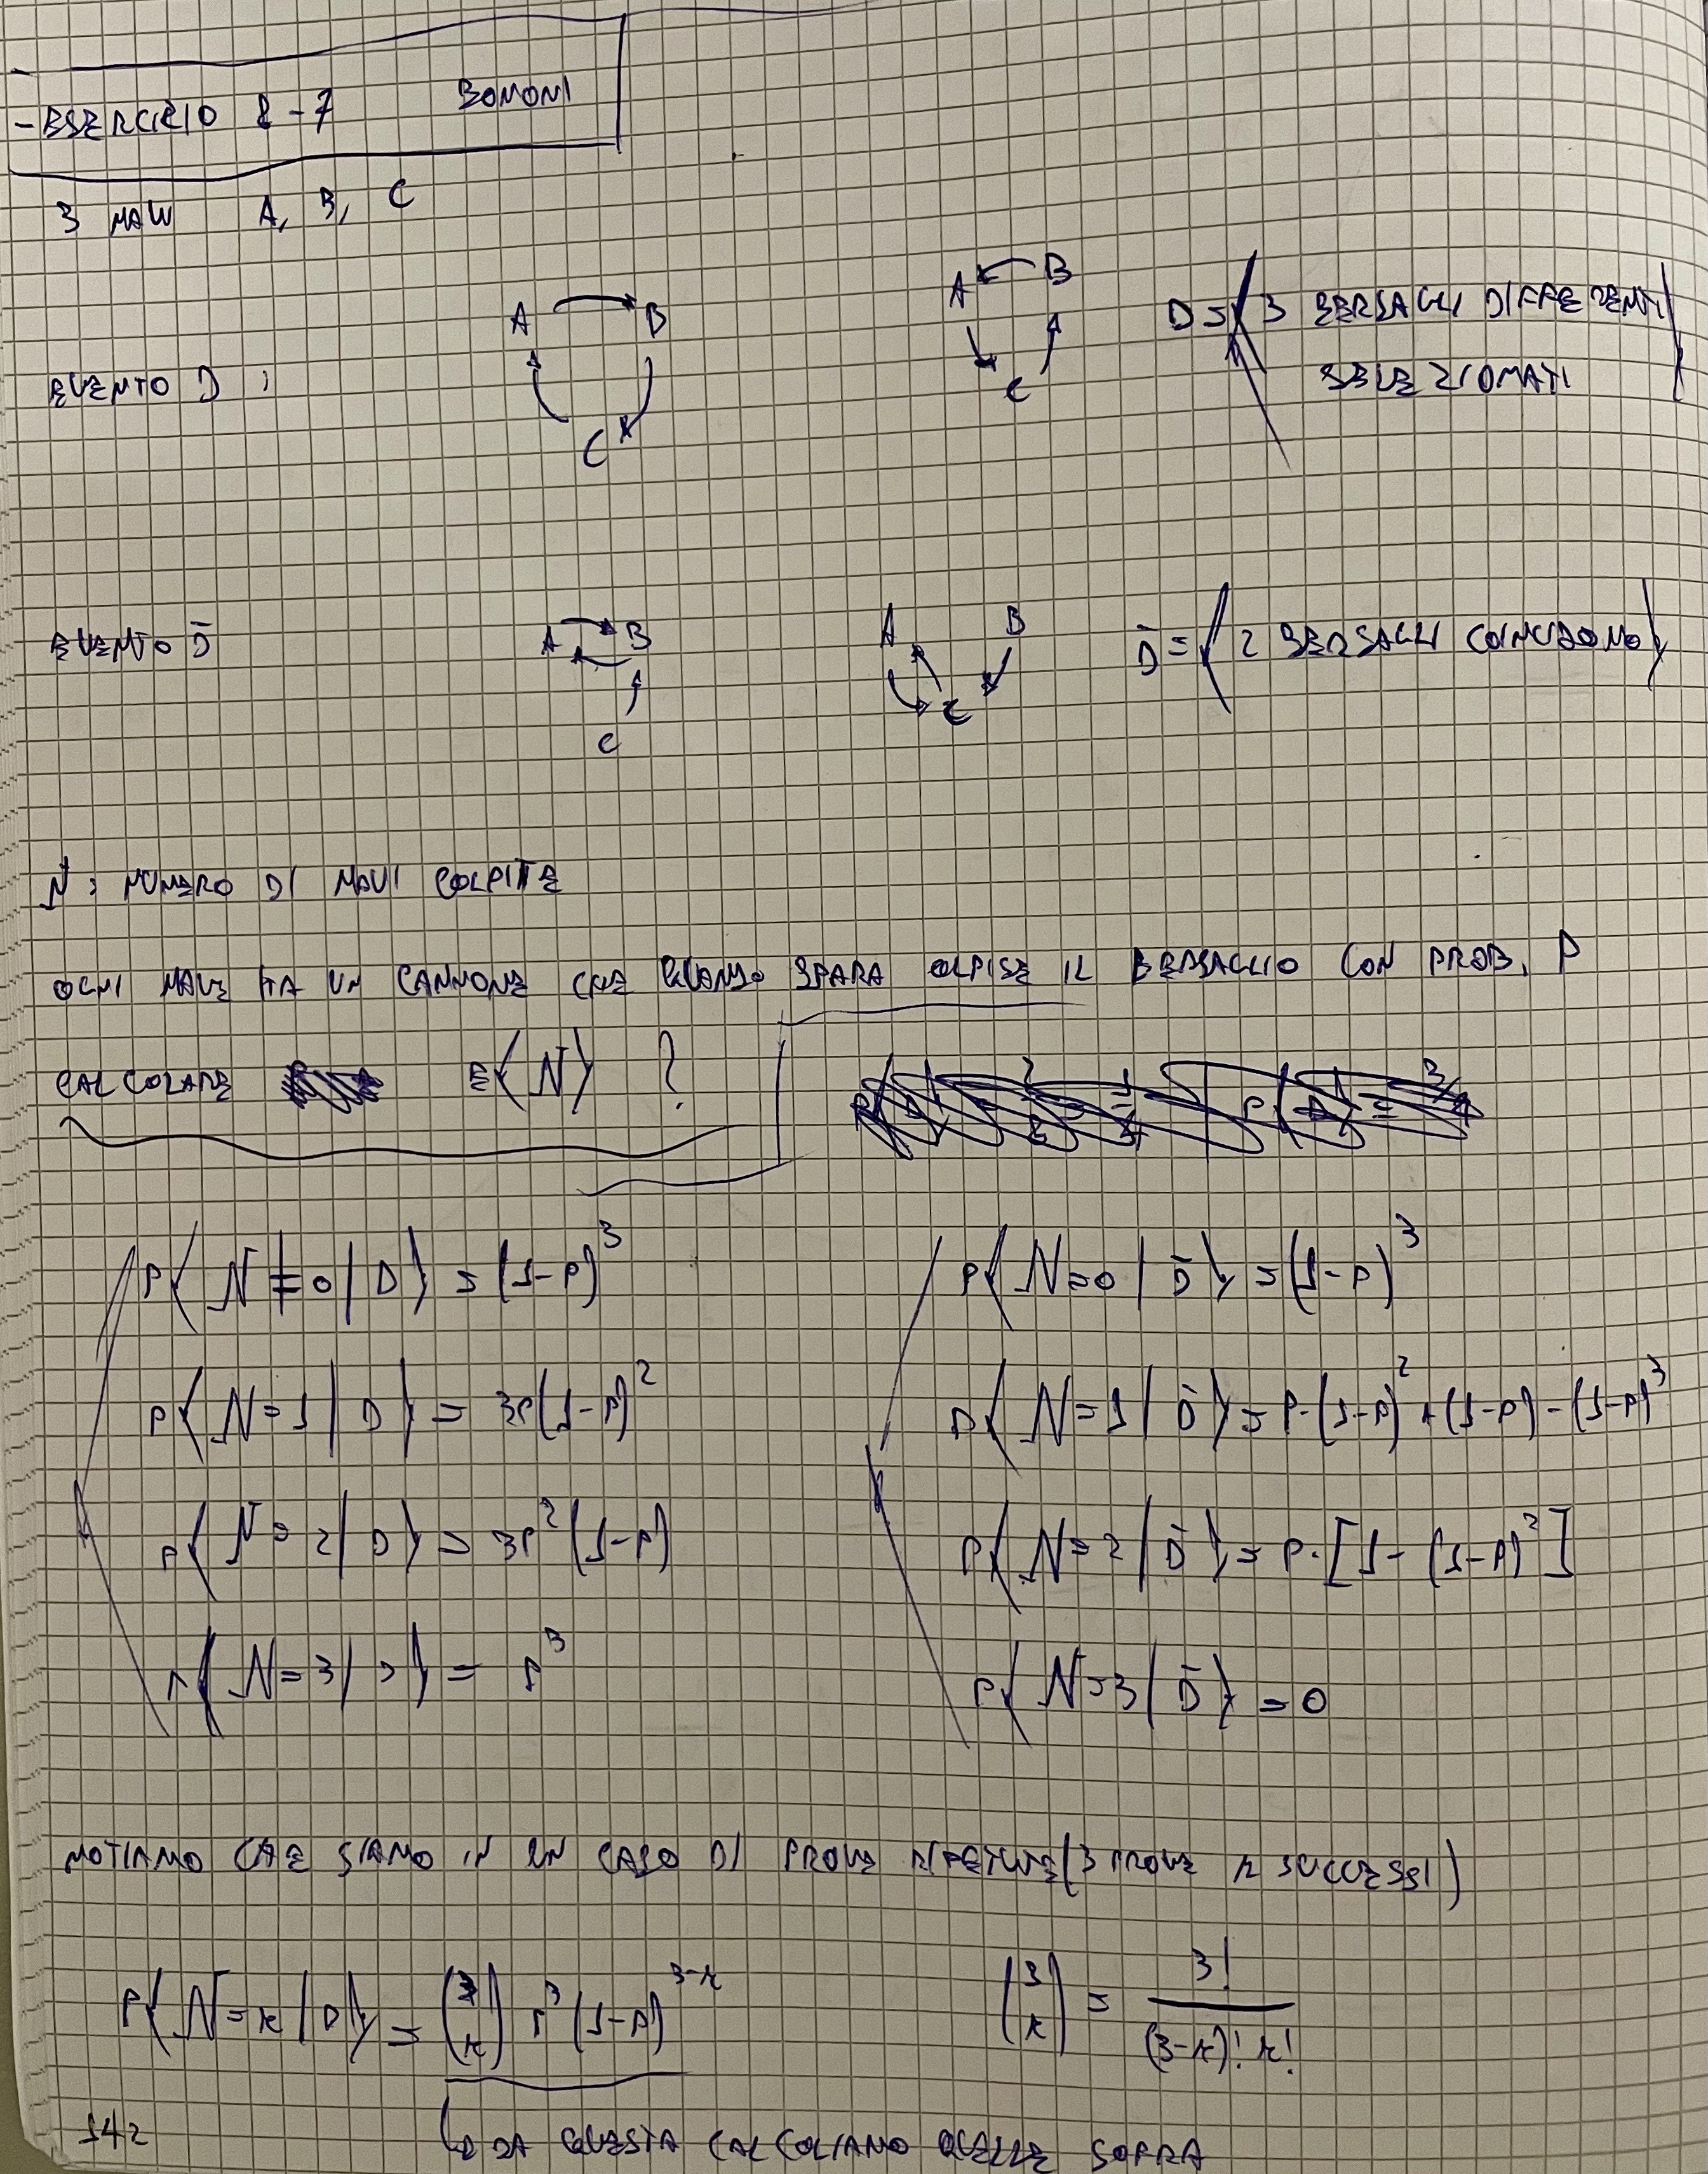 - ESERCIZIO 8-7 BONONI
3 NAVI A, B, C
EVENTO D : A B C A B C D = { 3 BERSAGLI DIFFERENTI
SELEZIONATI }
EVENTO D̄ A B C A B C D̄ = { 2 BERSAGLI COINCIDONO }
N : NUMERO DI NAVI COLPITE
OGNI NAVE HA UN CANNONE CHE QUANDO SPARA COLPISE IL BERSAGLIO CON PROB. P
CALCOLARE E{N} ?
P{N=0|D} = (1-P)^3 P{N=0|D̄} = (1-P)^3
P{N=1|D} = 3P(1-P)^2 P{N=1|D̄} = P·(1-P)^2 + (1-P) - (1-P)^3
P{N=2|D} = 3P^2(1-P) P{N=2|D̄} = P·[1-(1-P)^2]
P{N=3|D} = P^3 P{N=3|D̄} = 0
NOTIAMO CHE SIAMO IN UN CASO DI PROVE RIPETUTE (3 PROVE K SUCCESSI)
P{N=K|D} = (3 K) P^3 (1-P)^{3-K} (3 K) = 3! / (3-K)! K!
142 DA QUESTA CALCOLIAMO QUELLE SOPRA